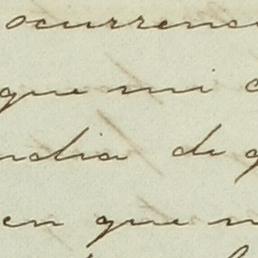 ocurrenci
que mi c
ndia de q
en que n